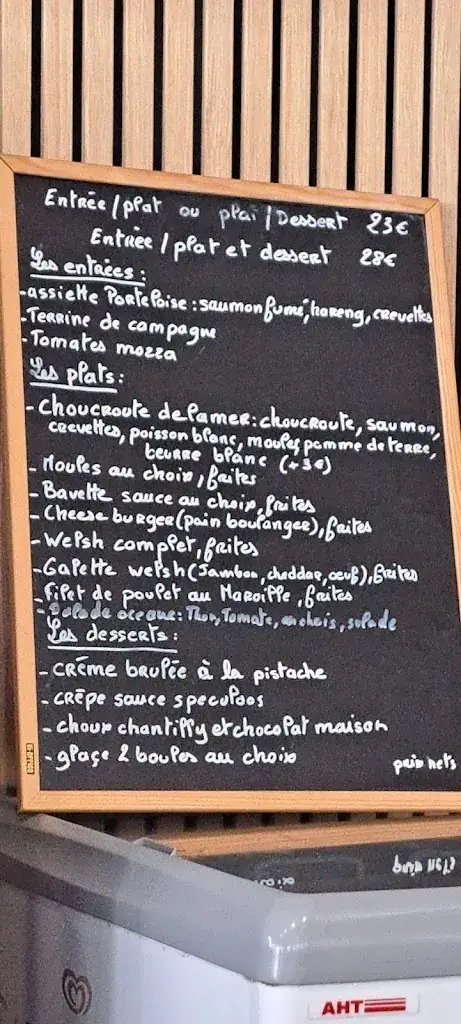 Entrée/plat ou plat/Dessert 23€
Entrée/plat et dessert 28€
Les entrées:
-assiette Porteloise: saumon fumé, hareng, crevettes
-Terrine de campagne
-Tomates mozza
Les plats:
-Choucroute de la mer: choucroute, saumon,
crevettes, poisson blanc, moules, pomme de terre,
beurre blanc (+3€)
-Moules au choix, frites
-Bavette sauce au choix, frites
-Cheese burger (pain boulanger), frites
-Welsh complet, frites
-Galette welsh (Jambon, cheddar, œuf), frites
-Filet de poulet au Maroille, frites
-Salade océane: Thon, Tomate, anchois, salade
Les desserts:
-crème brulée à la pistache
-crêpe sauce speculoos
-choux chantilly et chocolat maison
-glaçe 2 boules au choix
prix nets
AHT